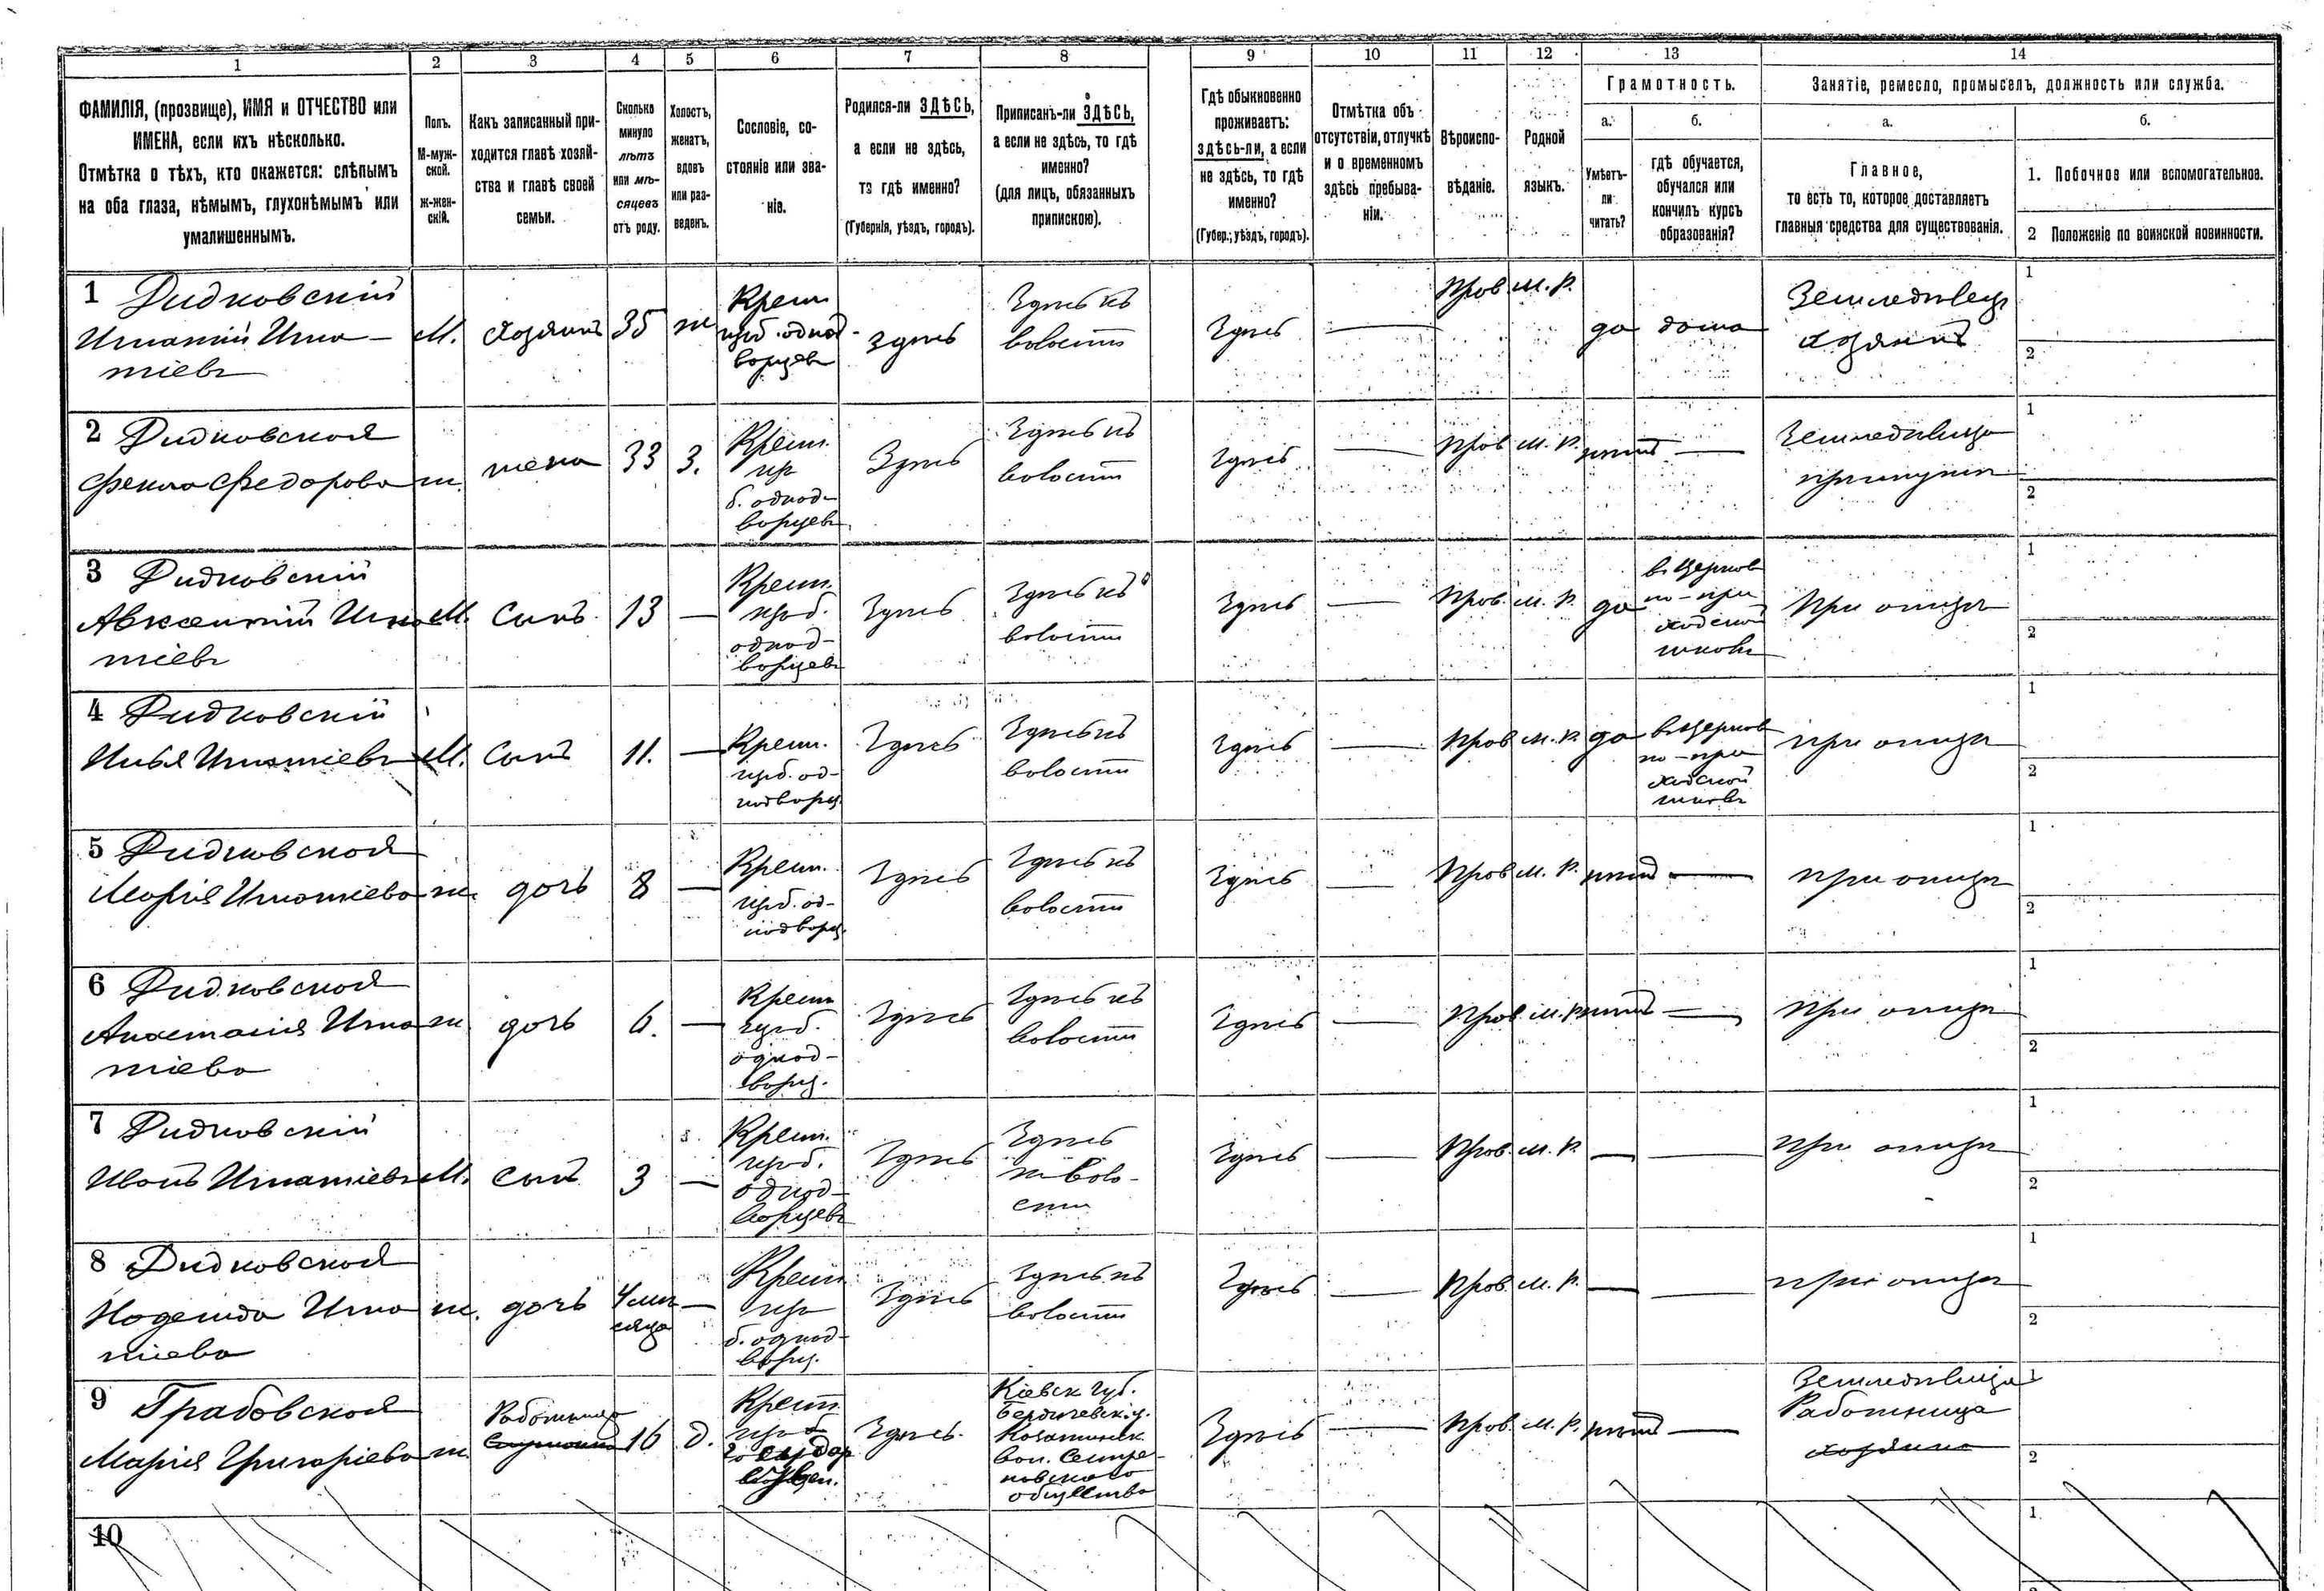 1 2 3 4 5 6 7 8 9 10 11 12 13 14
ФАМИЛІЯ, (прозвище), ИМЯ и ОТЧЕСТВО или
ИМЕНА, если ихъ нѣсколько.
Отмѣтка о тѣхъ, кто окажется: слѣпымъ
на оба глаза, нѣмымъ, глухонѣмымъ или
умалишеннымъ.
Полъ.
М-муж-
ской.
Ж-жен-
скій.
Какъ записанный при-
ходится главѣ хозяй-
ства и главѣ своей
семьи.
Сколько
минуло
лѣтъ
или мѣ-
сяцевъ
отъ роду.
Холостъ,
женатъ,
вдовъ
или раз-
веденъ.
Сословіе, со-
стояніе или зва-
ніе.
Родился-ли ЗДѢСЬ,
а если не здѣсь,
то гдѣ именно?
(Губернія, уѣздъ, городъ).
Приписанъ-ли ЗДѢСЬ,
а если не здѣсь, то гдѣ
именно?
(для лицъ, обязанныхъ
припискою).
Гдѣ обыкновенно
проживаетъ:
здѣсь-ли, а если
не здѣсь, то гдѣ
именно?
(Губер., уѣздъ, городъ).
Отмѣтка объ
отсутствіи, отлучкѣ
и о временномъ
здѣсь пребыва-
ніи.
Вѣроиспо-
вѣданіе.
Родной
языкъ.
Грамотность.
а.
Умѣетъ-
ли
читать?
б.
гдѣ обучается,
обучался или
кончилъ курсъ
образованія?
Занятіе, ремесло, промыселъ, должность или служба.
а.
Главное,
то есть то, которое доставляетъ
главныя средства для существованія.
б.
1. Побочное или вспомогательное.
2 Положеніе по воинской повинности.
1 Дидковскій
Игнатій Игна-
тіевъ
М.
Хозяинъ
35
ж
Крест
изъ б. однод-
ворцевъ
здѣсь
Здѣсь къ
волости
Здѣсь
—
Прав.
м. р.
да
дома
Земледѣлецъ
хозяинъ
1
2
2 Дидковская
Фекла Федорова
ж.
жена
33
З.
Крест.
из
б. однод-
ворцевъ
Здѣсь
Здѣсь къ
волости
Здѣсь
—
Прав
м. р.
нѣтъ
—
Земледѣлица
при мужѣ
1
2
3 Дидковскій
Авксентій Игна
тіевъ
М.
Сынъ.
13
—
Крест.
из б.
однод-
ворцевъ
Здѣсь
Здѣсь къ
волости
Здѣсь
—
Прав.
м. р.
да
въ церков
но-при
ходской
школѣ
При отцѣ
1
2
4 Дидковскій
Илья Игнатіевъ
М.
Сынъ
11.
—
Крест.
из б. од-
нодворц.
Здѣсь
Здѣсь къ
волости
Здѣсь
—
Прав
м. р.
да
въ церков
но-при
ходской
школѣ
при отцѣ
1
2
5 Дидковская
Марія Игнатіева
ж.
дочь
8
—
Крест.
из б. од-
нодворц
Здѣсь
Здѣсь къ
волости
Здѣсь
—
Прав
м. р.
нѣтъ
—
при отцѣ
1
2
6 Дидковская
Анастасія Игна
тіева
ж
дочь
6.
—
Крест
из б.
однод-
ворц.
Здѣсь
Здѣсь къ
волости
Здѣсь
—
Прав
м. р
нѣтъ
—
при отцѣ
1
2
7 Дидковскій
Иванъ Игнатіевъ
М.
сынъ
3
—
Крест.
из б.
однод-
ворцевъ
Здѣсь
Здѣсь
къ воло-
сти
Здѣсь
—
Прав.
м. р.
—
—
при отцѣ
1
2
8 Дидковская
Надежда Игна
тіева
ж.
дочь
4 мѣ
сяца
—
Крест
из
б. однод-
ворц.
Здѣсь
Здѣсь къ
волости
Здѣсь
—
Прав.
м. р.
—
—
при отцѣ
1
2
9 Грабовская
Марія Григоріева
ж.
Работница
16
д.
Крест.
из б
Здѣсь.
Кіевск губ.
Бердичевск. у.
Козатинск
вол.
общества
Здѣсь
—
Прав.
м. р.
нѣтъ
—
Земледѣлица
Работница
хозяина
1
2
10
1